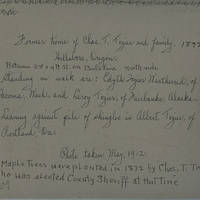 Former home of Chas. T. Tozier and family. 1899
Hillsboro, Oregon.
Between 3rd & 4th St. on Baseline North side
Standing on walk are: Edyth Tozier Weatherred, of
Tacoma, Wash., and Leroy Tozier, of Fairbanks Alaska.
Leaning against pile of shingles is Albert Tozier, of
Portland, Ore.
Photo taken May, 1912.
Maple Trees were planted in 1872 by Chas. T. T
ho was elected County Sheriff at that Time